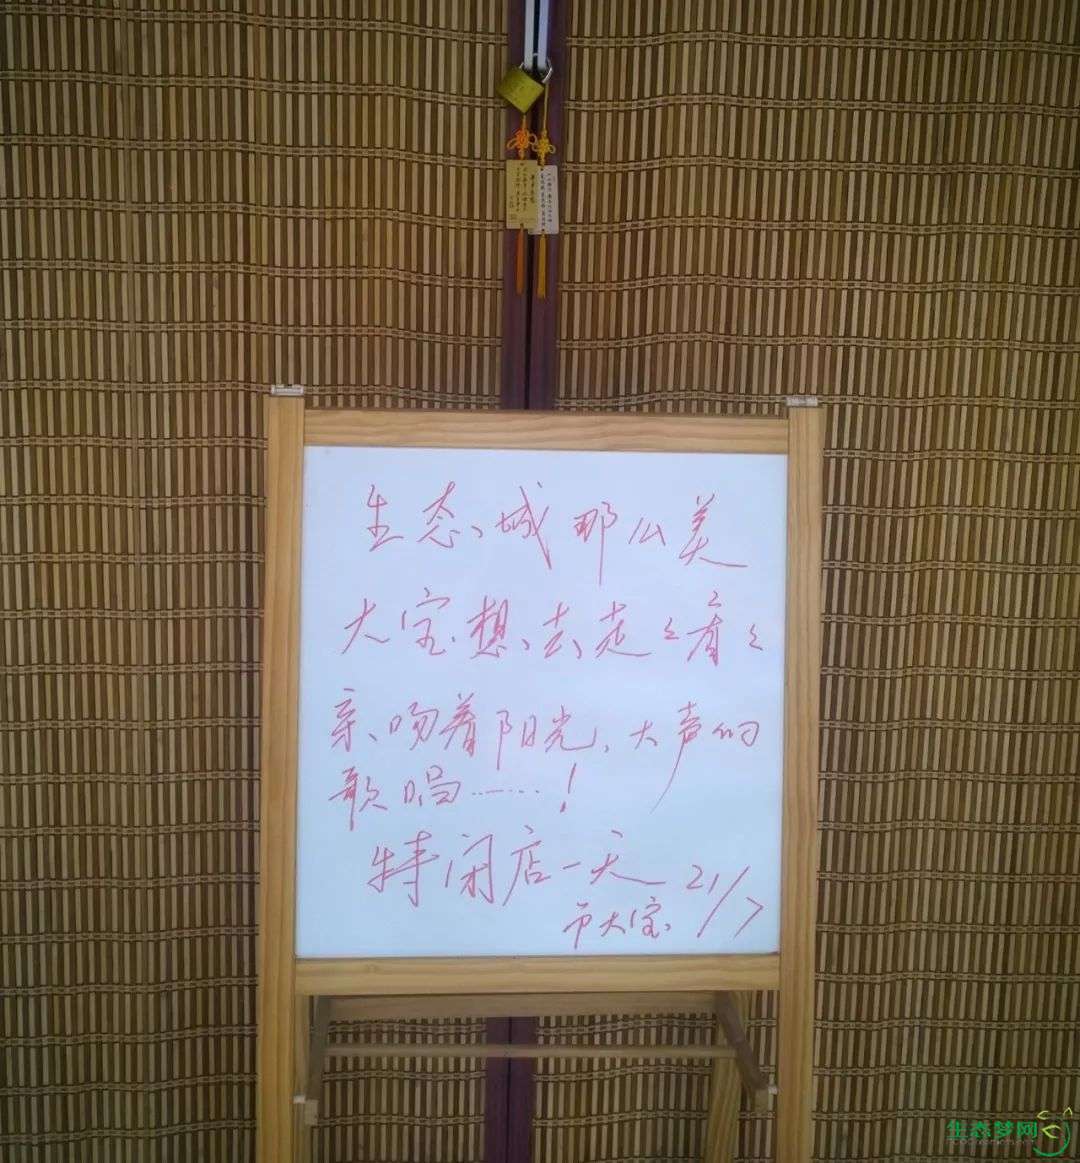 生态城那么美
大宝想去走〻看〻
亲吻着阳光、大声的
歌唱……！
特闭店一天 21/7
大宝
生态梦网